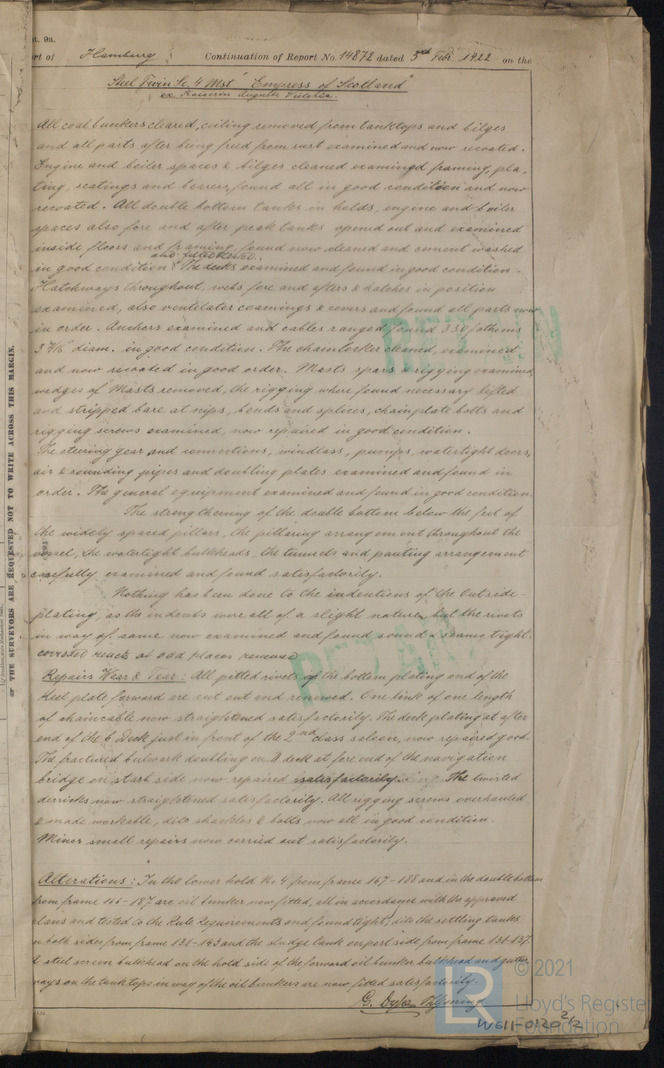 rt. 9a.
rt of Hamburg Continuation of Report No. 14872 dated 3rd Feb. 1922 on the
Steel Twin Sc. 4 Mst "Empress of Scotland"
ex Kaiserin Auguste Victoria.
All coal bunkers cleared, ceiling removed from tanktops and bilges
and all parts after being freed from rust examined and now recoated.
Engine and boiler spaces & bilges cleaned examined framing, pla,
ting, seatings and bearers, found all in good condition and now
recoated. All double bottom tanks in holds, engine and boiler
spaces also fore and after peak tanks opened out and examined
inside floors and framing found now cleaned and cement washed
also filled tested.
in good condition. The decks examined and found in good condition.
Hatchways throughout, webs fore and afters & hatches in position
examined, also ventilator coamings & covers and found all parts now
in order. Anchors examined and cables ranged found 330 fathoms
3 7/16" diam. in good condition. The chainlocker cleaned, examined
and now recoated in good order. Masts spars & rigging examined
wedges of Masts removed, the rigging where found necessary lifted
and stripped bare at nips, bends and splices, chainplate bolts and
rigging screws examined, now repaired in good condition.
The steering gear and connections, windlass, pumps, watertight doors,
air & sounding pipes and doubling plates examined and found in
order. The general equipment examined and found in good condition.
The strengthening of the double bottom below the feet of
the widely spaced pillars, the pillaring arrangement throughout the
vessel, the watertight bulkheads, the tunnels and panting arrangement
carefully examined and found satisfactorily.
Nothing has been done to the indentions of the outside
plating, as the indents were all of a slight nature, but the rivets
in way of same now examined and found sound & seams tight.
corroded at odd places renewed
Repairs Wear & Tear: All pitted rivets of the bottom plating end of the
keel plate forward are cut out and renewed. One link of one length
of chaincable now straightened satisfactorily. The deck plating at after
end of the B Deck just in front of the 2nd class saloon, now repaired good.
The fractured bulwark doubling on A deck at fore end of the navigation
bridge on starb side now repaired satisfactorily. The twisted
derricks now straightened satisfactorily. All rigging screws overhauled
& made workable, dito shackles & bolts, now all in good condition.
Minor small repairs now carried out satisfactorily.
Alterations: In the lower hold No 4 from frame 167-188 and in the double bottom
from frame 166-187 are oil bunker now fitted, all in accordance with the approved
plans and tested to the Rule Requirements and found tight, dito the settling tanks
n both sides from frame and the sludge tank on port side from frame 134-137.
steel screen bulkhead on the hold side of the forward oil bunker bulkhead and gutter
ways on the tanktops in way of the oil bunkers are now fitted satisfactorily.
or THE SURVEYORS ARE REQUESTED NOT TO WRITE ACROSS THIS MARGIN.
RETAIN
RETAIN
LR
© 2021
Lloyd's Register
Foundation
W611-0120 2/2